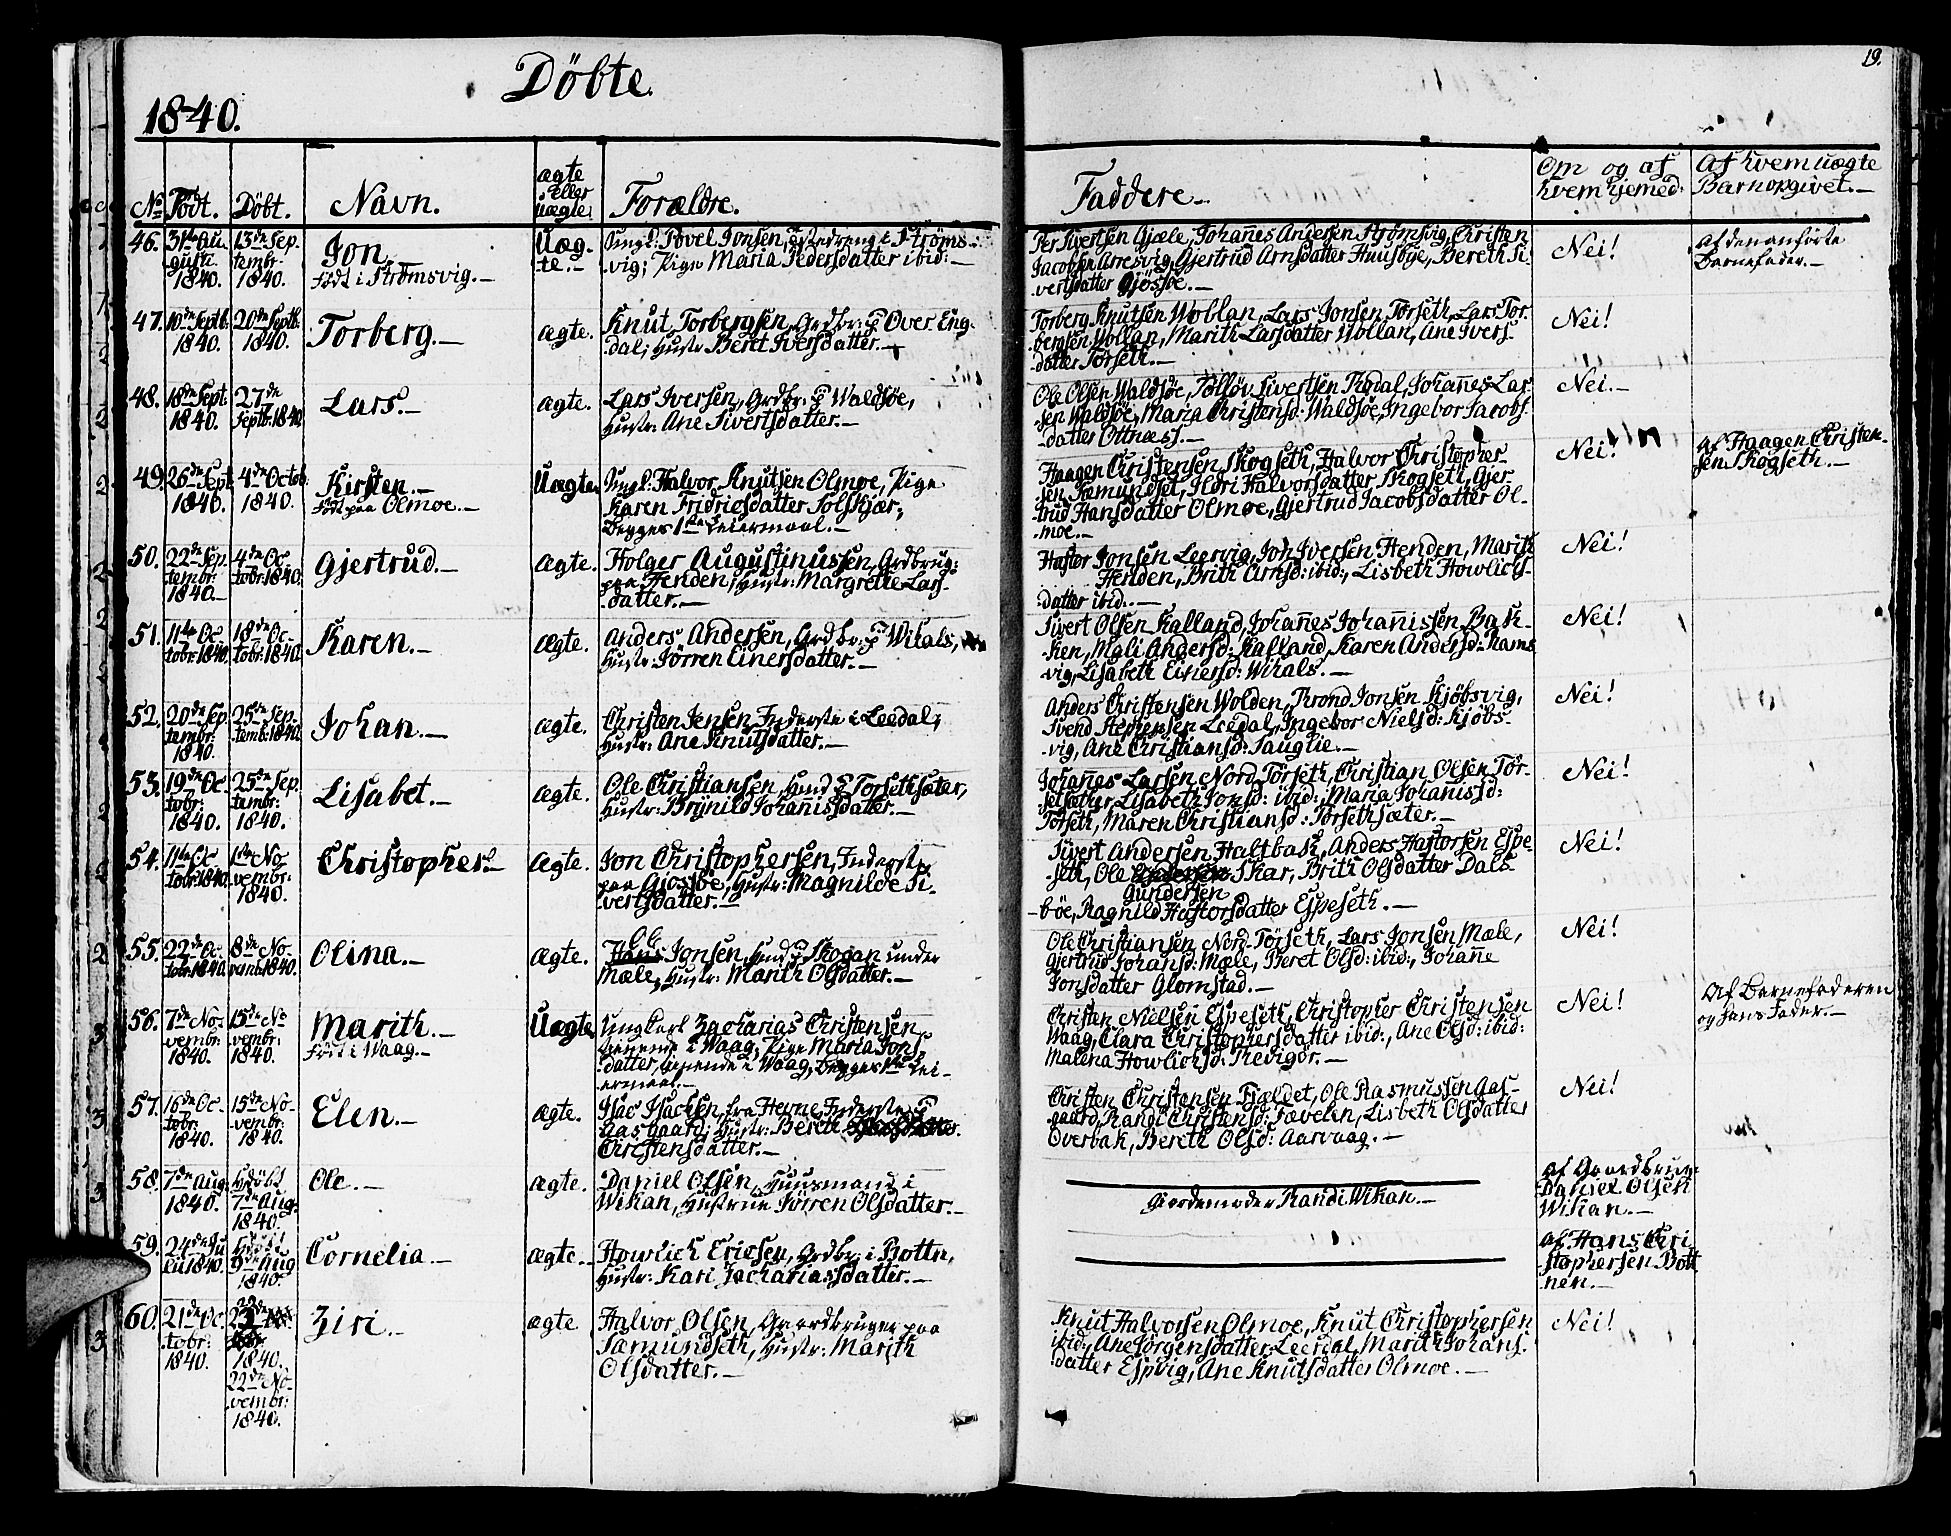 Döbte.
19.
1840.
No Födt. Döbt. Navn. ægte Eller Uægte. Forældre. Faddere. Om og af hvem hjemed: Af hvem uægte Barn opgivet.
46. 31te August. 1840. 13de Septembr. 1840. Jon. Födt i Strömsvig. Uægte. Ungk: Povel Jonsen, Strömsvig; Pige Maria Pedersdatter ibid:
Per Sivertsen Gjæle, Johan̄es Andersen Strömsvig, Christen
Jacobsen Arresvig, Gjertrud Arnsdatter Huusbye, Bereth Sivertsdatter Gjössöe. Nei! Af den anförte Barnefader.
47. 10de Septb. 1840. 20de Septb. 1840. Torberg. ægte. Knut Torbergsen, Grdbr: p Over Engdal; Hustr: Beret Iversdatter.
Torberg Knutsen Wollan, Lars Jonsen Törseth, Lars Torbergsen Wollan, Marith Larsdatter Wollan, Ane Iversdatter Törseth. Nei!
48. 18de Sept. 1840. 27de Septb: 1840. Lars. ægte. Lars Iversen, Grdbr: p Waldsöe, Hustr: Ane Sivertsdatter.
Ole Olsen Waldsöe, Tölløv Sivertsen Rødal, Johan̄es Larsen Waldsöe, Maria Christensd: Waldsöe, Ingebor Jacobsdatter Ottnæss. Nei.
49. 26de Sept. 1840. 4de Octob: 1840. Kirsten. Födt paa Olmoe. Uægte. Ungk: Halvor Knutsen Olmoe, Pige Karen Fridricsdatter Solskjær; Begges 1ste Leiermaal.
Haagen Christensen Skogseth, Halvor Christophersen Sæmundset, Ildri Halvorsdatter Skogseth, Gjertrud Hansdatter Olmoe, Gjertrud Jacobsdatter Olmoe. Nei! Af Haagen Christensen Skogseth.
50. 22de Septembr: 1840. 4de Octobr: 1840. Gjertrud. ægte. Holger Augustinussen, Grdbrug: paa Henden; Hustr: Margrethe Larsdatter.
Hastor Jonsen Leervig, Jon Iversen Henden, Marith Henden, Brith Arnsd: ibid:, Lisbeth Howlichsdatter ibid. Nei!
51. 11te Octobr: 1840. 18de Octobr: 1840. Karen. ægte. Anders Andersen, Grdbr: p Wikals, Hustr: Jörren Einersdatter.
Sivert Olsen Kalland, Johan̄es Johan̄issen Bakken, Mali Andersd: Kalland, Karen Andersd: Ramsvig, Lisabeth Einersd: Wikals. Nei!
52. 20de Septembr: 1840. 25de Septembr: 1840. Johan. ægte. Christen Jensen Inderste i Leedal; Hustr: Ane Knutsdatter.
Anders Christensen Wolden, Trond Jonsen Kjöbsvig, Svend Stephensen Leedal, Ingebor Nielsd: Kjöbsvig, Ane Christiansd: Sauglie. Nei!
53. 19de Octobr: 1840. 25de Septembr: 1840. Lisabet. ægte. Ole Christiansen, Husmd p Torsethsæter, Hustr: Brynild Johanisdatter.
Johan̄es Larsen Nord Törseth, Christian Olsen Törsetsæther, Lisabeth Jonsd: ibid:, Maria Johanisd: Törseth, Maren Christiansd: Törsethsæter. Nei!
54. 11te Octobr: 1840. 1ste Novembr: 1840. Christopher. ægte. Jon Christophersen, Inderste paa Gjössöe, Hustr: Magnilde Sivertsdatter.
Sivert Andersen Haltbak, Anders Hastorsen Espeseth, Ole Gundersen Skar, Brith Olsdatter Dalsböe, Ragnild Hastorsdatter Espeseth. Nei!
55. 22de Octobr: 1840. 8de Novemb: 1840. Olina. ægte. Ole Jonsen, Husmd p Skogan under Mæle, Hustr: Marith Olsdatter.
Ole Christiansen Nord-Törseth, Lars Jonsen Mæle, Gjertrud Johansd: Mæle, Beret Olsd: ibid:, Johane Jonsdatter Glomstad. Nei!
56. 7de Novembr: 1840. 15de Novembr: 1840. Marith. Födt i Waag. Uægte. Ungkarl Zacharias Christensen, tienende i Waag; Pige Maria Jonsdatter, tienende i Waag, Begges 1ste Leiermaal.
Christen Nielsen Espeseth, Christopher Christensen Waag, Clara Christophersdatter ibid:, Ane Olsd: ibid: Malena Howlichsd: Rædigör. Nei! Af Barnefaderen og hans Fader.
57. 16de Octobr: 1840. 15de Novembr: 1840. Elen. ægte. Isac Isachsen fra Hevne, Inderste p Aasgaard; Hustr: Bereth Christensdatter.
Christen Christensen Fjældet, Ole Rasmussen Aasgaard, Randi Christensd: Tævelen, Lisbeth Olsdatter Overbak, Bereth Olsd: Aarvaag. Nei!
58. 7de Aug: 1840. Hjdöbt 7de Aug: 1840. Ole. ægte. Daniel Olsen, Huusmand i Wikan, Hustrue Jörren Olsdatter.
Gordemoder Randi Wikan. Af Gaardbrug: Daniel Olsen Wikan.
59. 24de Juli 1840. Hjdöbt 9de Aug 1840. Cornelia. ægte. Howlich Ericsen, Grdbr: i Bottn, Hustr: Kari Zachariasdatter.
Af Hans Christophersen Bottnen.
60. 21de Octobr: 1840. 1840. 22de Novembr: 1840. Ziri. ægte Halvor Olsen, Gaardbruger paa Sæmundseth, Hustr: Marith Olsdatter.
Knut Halvorsen Olmoe, Knut Christophersen ibid:, Ane Jörgensdatter Leerdal, Marith Johansdatter Espvig, Ane Knutsdatter Olmoe. Nei!